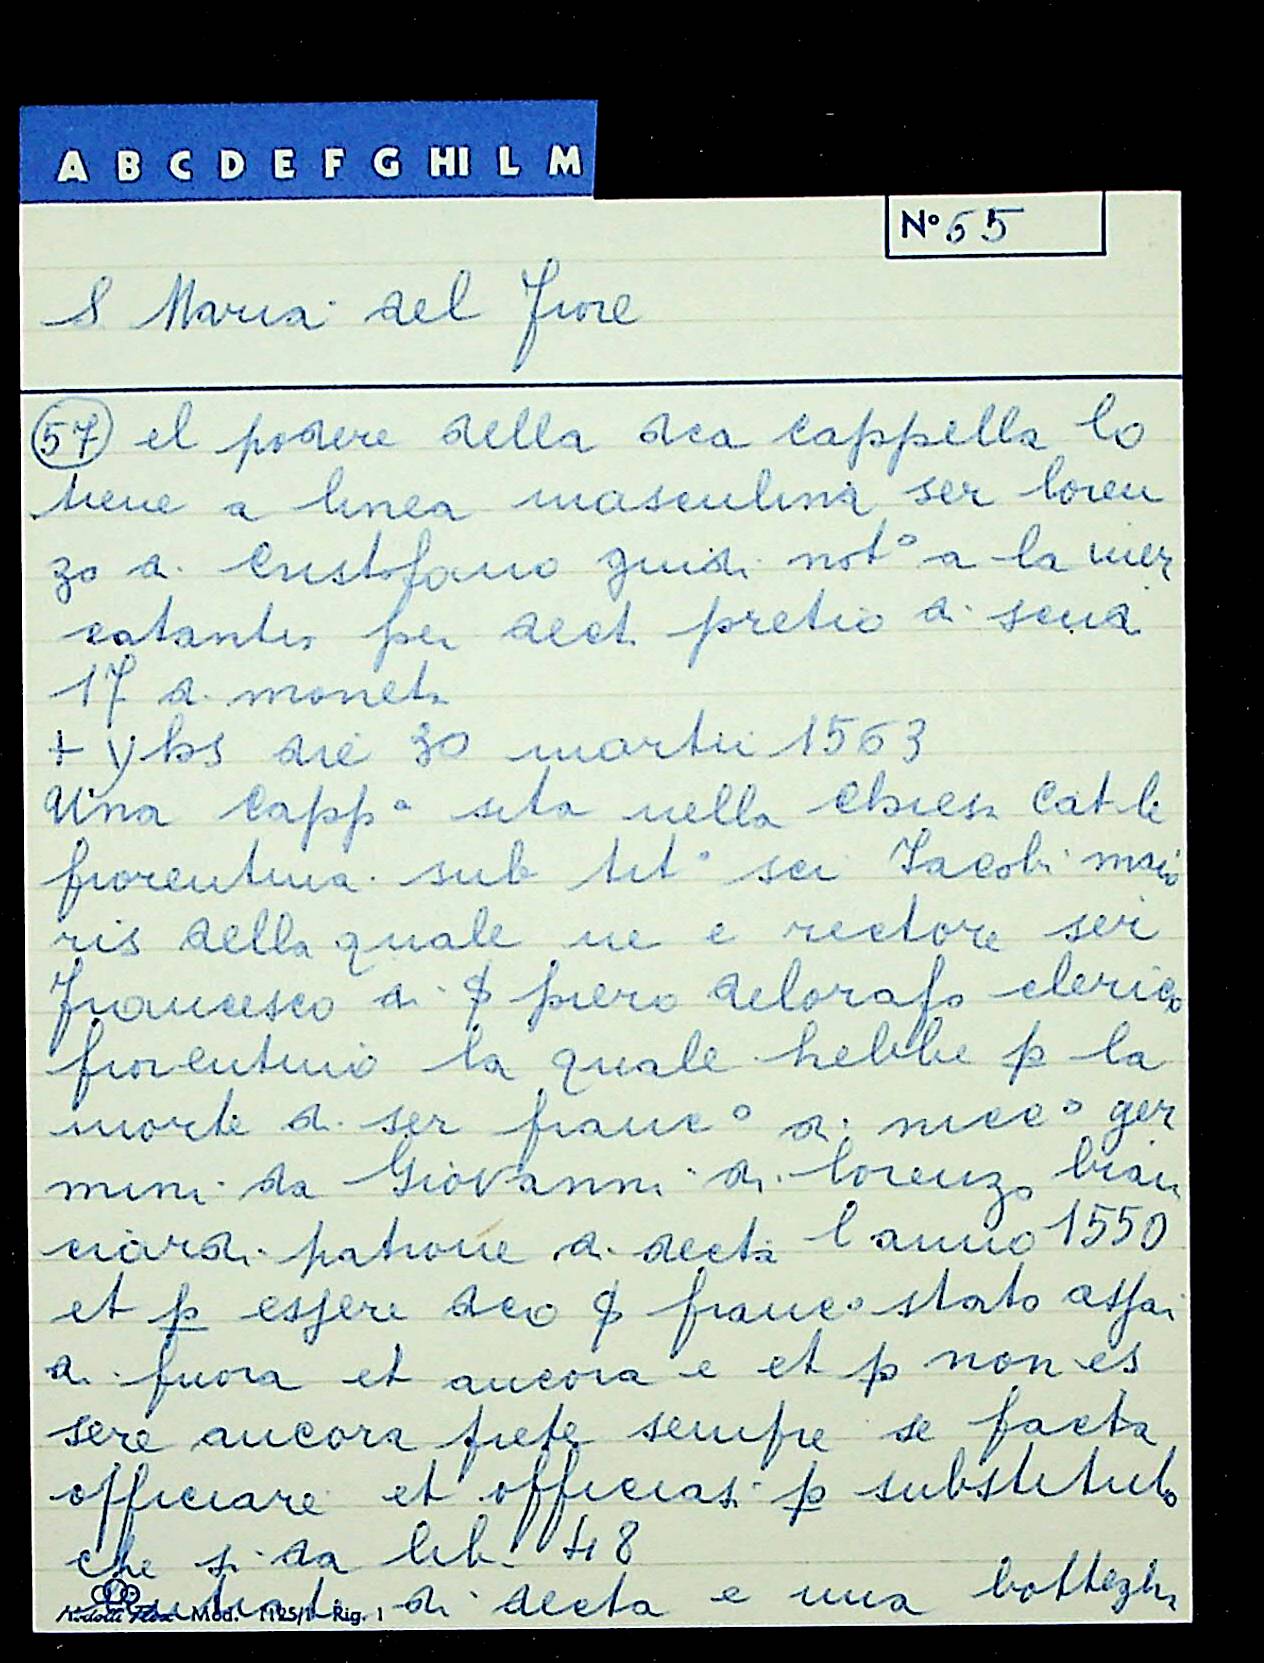 A B C D E F G HI L M
N° 55
S Maria del Fiore
57 el podere della dca cappella lo
tiene a linea masculina ser loren
zo di Cristofano guidi not° a la mer
catantia per dect pretio di scudi
17 di moneta
+ yhs die 30 martii 1563
Una capp a sita nella chiesa Cat le
fiorentina sub tit° sci Jacobi maio
ris della quale ne e rectore ser
francesco di piero delorafo clerico
fiorentino la quale hebbe p la
morte di ser franc° di nicc° ger
mini da Giovanni di lorenzo bian
ciardi patrone di decta l anno 1550
et p essere dco franc° stato assai
di fuora et ancora e et p non es
sere ancora prete sempre se facta
officiare et officiasi p substituto
che si da lib. 48
di decta e una bottegha
Mod. 1125/1 Rig. 1